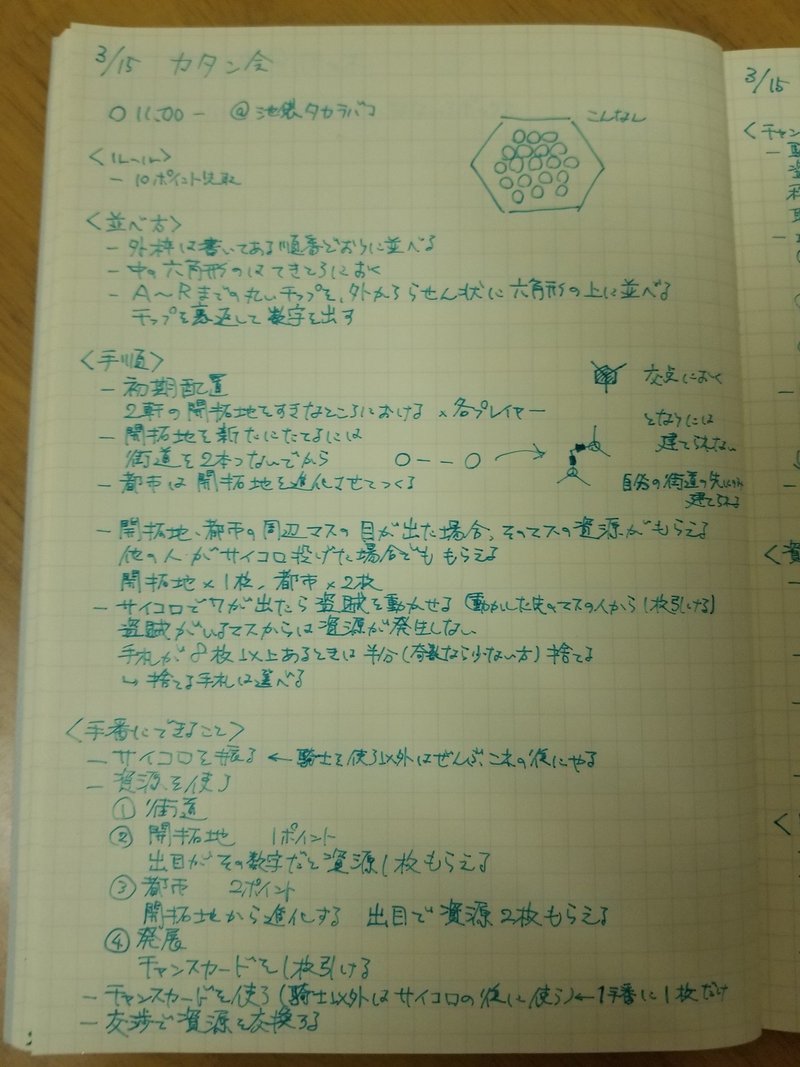 3/15 カタン会
○ 11:00 - @池袋タカラバコ
こんなし
<ルール>
- 10ポイント先取
<並べ方>
- 外枠は書いてある順番どおりに並べる
- 中の六角形のはてきとうにおく
- A～Rまでの丸いチップを、外かららせん状に六角形の上に並べる
チップを裏返して数字を出す
<手順>
- 初期配置
2軒の開拓地をすきなところにおける ×各プレイヤー
- 開拓地を新たにたてるには
街道を2本つないでから
- 都市は開拓地を進化させてつくる
交点におく
となりには
建てられない
自分の街道の先にのみ
建てられる
- 開拓地、都市の周辺マスの目が出た場合、そのマスの資源がもらえる
他の人がサイコロ投げた場合でももらえる
開拓地×1枚、都市×2枚
- サイコロで7が出たら盗賊を動かせる (動かした先のマスの人から1枚引ける)
盗賊がいるマスからは資源が発生しない
手札が8枚以上あるときは半分(奇数なら少ない方)捨てる
↳ 捨てる手札は選べる
<手番にできること>
- サイコロを振る ← 騎士を使う以外はぜんぶこれの後にやる
- 資源を使う
① 街道
② 開拓地 1ポイント
出目がその数字だと資源1枚もらえる
③ 都市 2ポイント
開拓地から進化する 出目で資源2枚もらえる
④ 発展
チャンスカードを1枚引ける
- チャンスカードを使う(騎士以外はサイコロの後に使う) ← 1手番に1枚だけ
- 交渉で資源を交換する
3/15